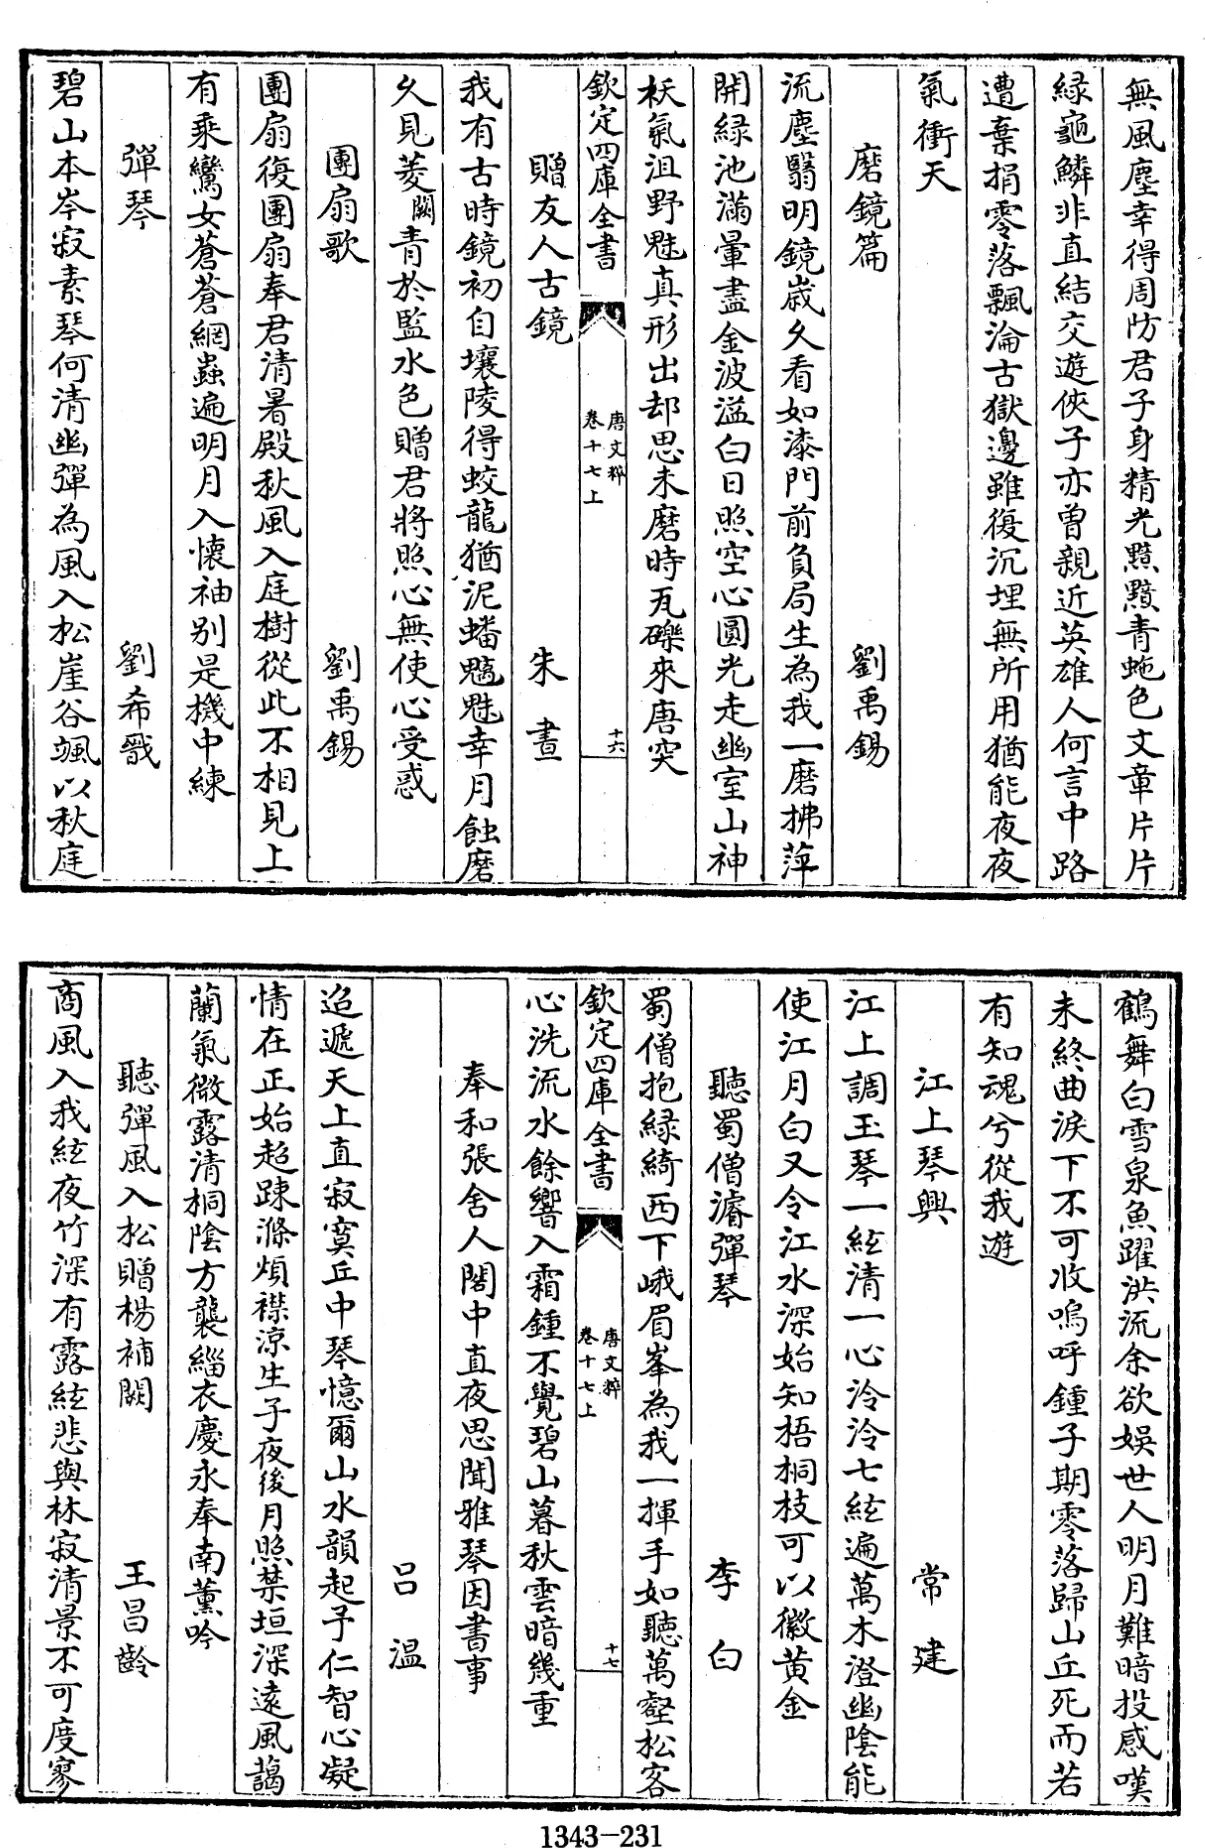 無風塵幸得周防君子身精光黯黯青虵色文章片片
緑龜鱗非直結交遊俠子亦曾親近英雄人何言中路
遭棄捐零落飄淪古獄邊雖復沉埋無所用猶能夜夜
氣衝天
磨鏡篇 劉禹錫
流塵翳明鏡歲久看如漆門前負局生為我一磨拂萍
開緑池滿暈盡金波溢白日照空心圓光走幽室山神
妖氣沮野魅真形出却思未磨時瓦礫來唐突
欽定四庫全書 唐文粹 卷十七上 十六
贈友人古鏡 朱晝
我有古時鏡初自壞陵得蛟龍猶泥蟠魑魅幸月蝕磨
久見菱闕青於監水色贈君將照心無使心受惑
團扇歌 劉禹錫
團扇復團扇奉君清暑殿秋風入庭樹從此不相見上
有乘鸞女蒼蒼網蟲遍明月入懷袖别是機中練
彈琴 劉希戬
碧山本岑寂素琴何清幽彈為風入松崖谷颯以秋庭
鶴舞白雪泉魚躍洪流余欲娛世人明月難暗投感嘆
未終曲淚下不可收嗚呼鍾子期零落歸山丘死而若
有知魂兮從我遊
江上琴興 常建
江上調玉琴一絃清一心泠泠七絃遍萬木澄幽陰能
使江月白又令江水深始知梧桐枝可以徽黄金
聽蜀僧濬彈琴 李白
蜀僧抱緑綺西下峨眉峯為我一揮手如聽萬壑松客
欽定四庫全書 唐文粹 卷十七上 十七
心洗流水餘響入霜鍾不覺碧山暮秋雲暗幾重
奉和張舍人閣中直夜思聞雅琴因書事
吕溫
迢遞天上直寂寞丘中琴憶爾山水韻起予仁智心凝
情在正始超踈滌煩襟涼生子夜後月照禁垣深遠風藹
蘭氣微露清桐陰方襲緇衣慶永奉南薰吟
聽彈風入松贈楊補闕 王昌齡
商風入我絃夜竹深有露絃悲與林寂清景不可度寥
1343-231